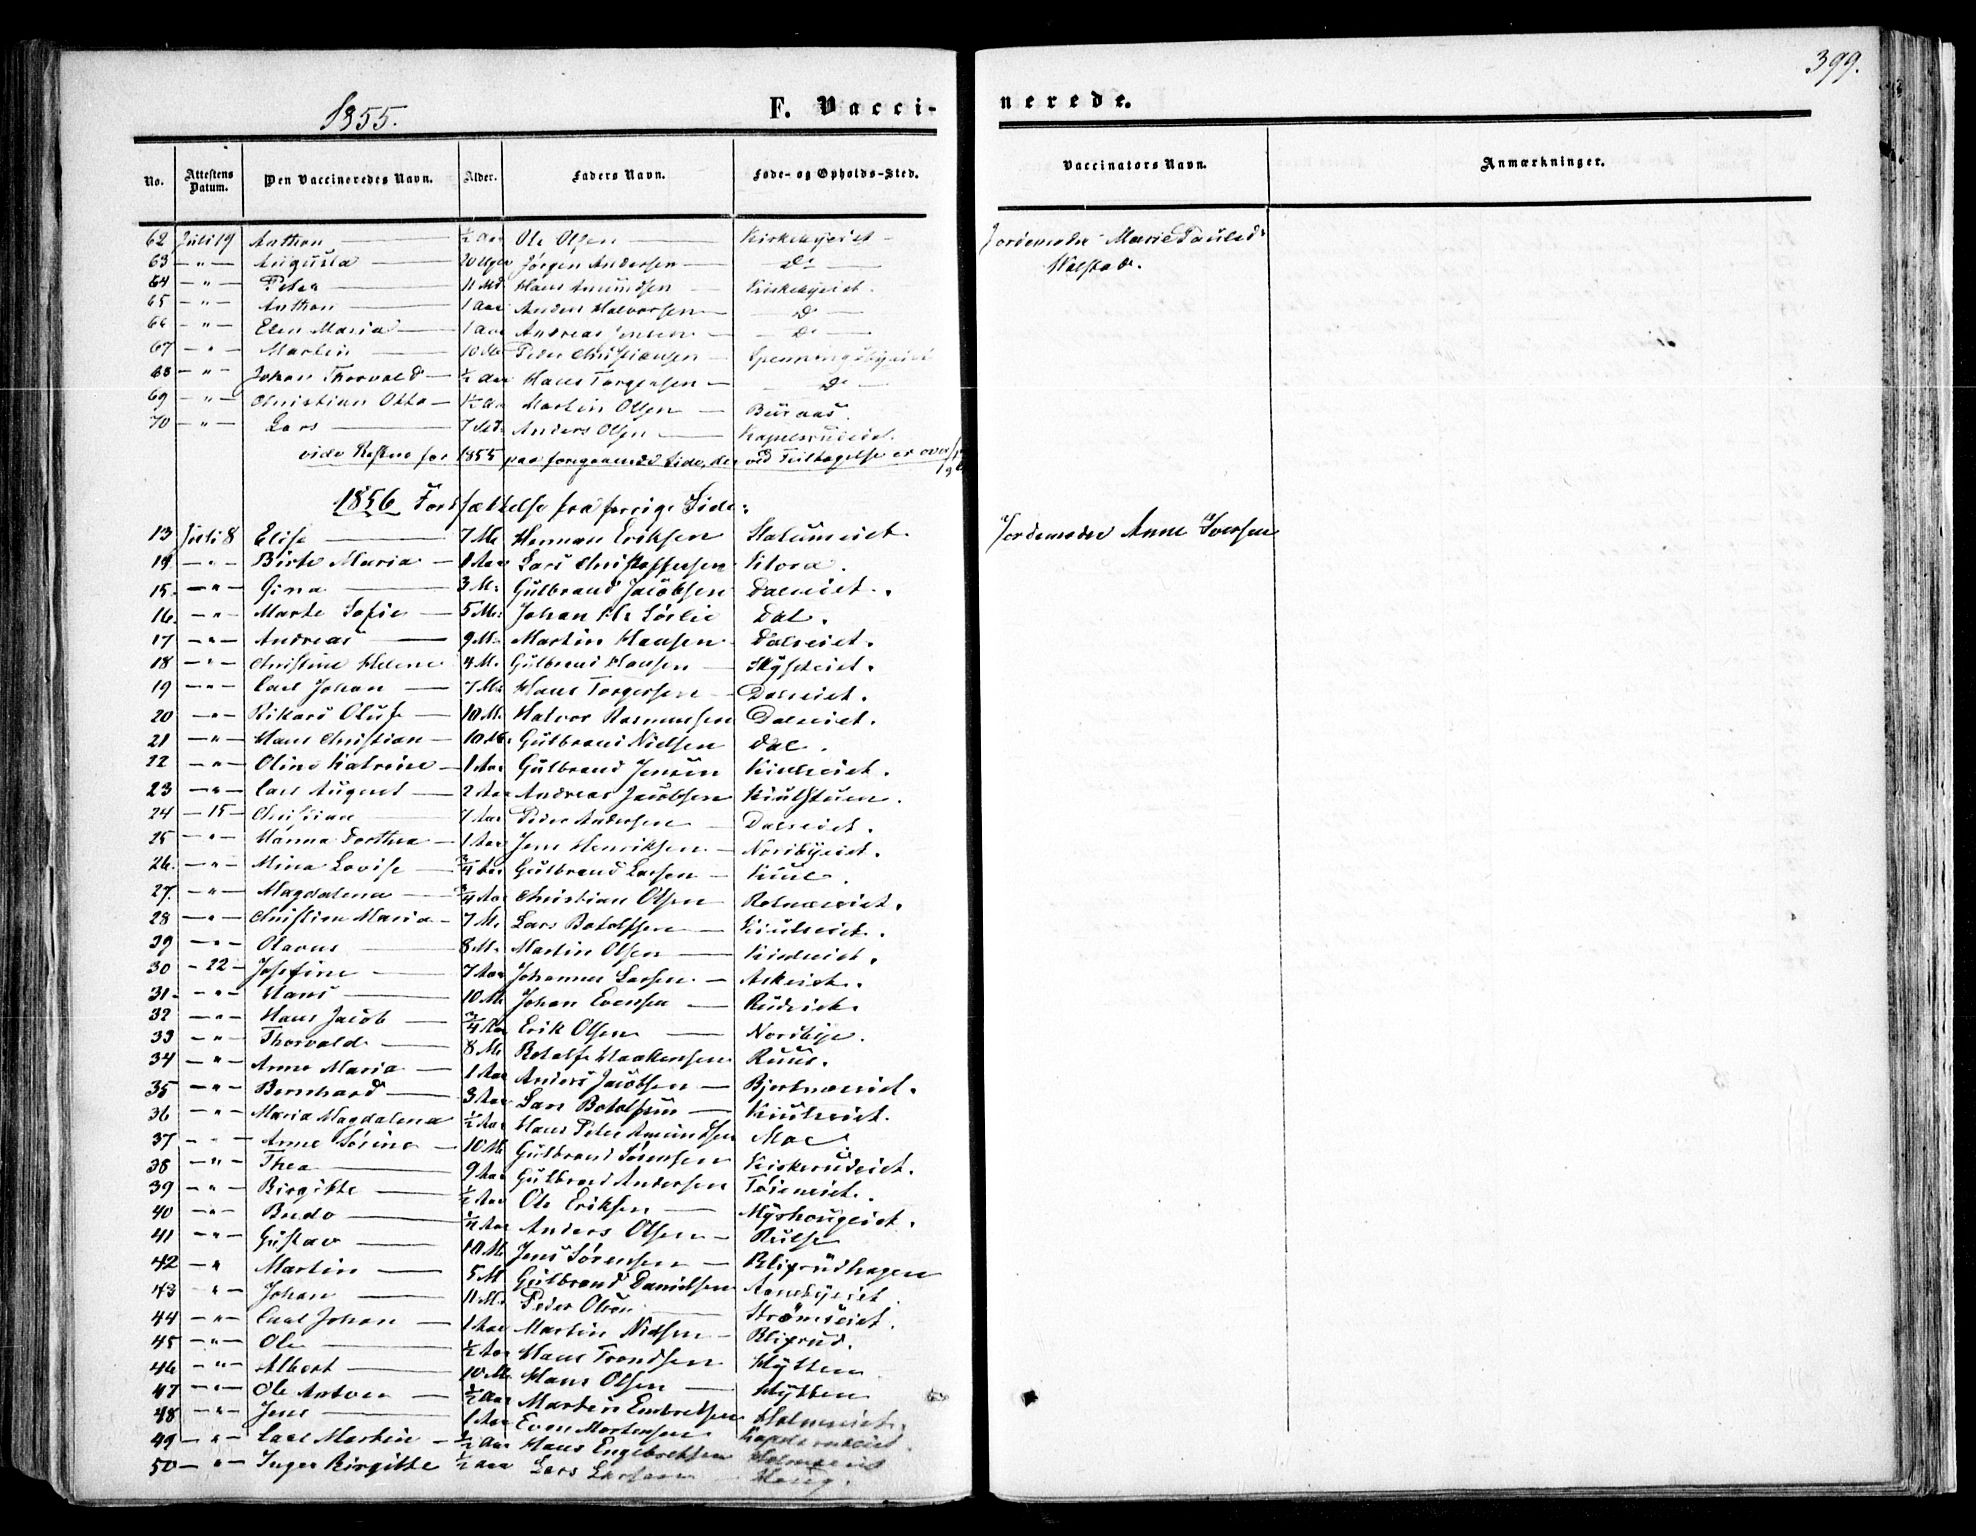 399.
1855.
F. Vacci-
nerede.
No. Attestens Datum. Den Vaccineredes Navn. Alder. Faders Navn. Føde- og Opholds-Sted. Vaccinators Navn. Anmærkninger.
62 Juli 19 Anthon ½ Aar Ole Olsen Kirkebyeiet Jordemoder Marie Paulsd.
63 " Augusta 20 Uger Jørgen Andersen Do Wolstad.
64 " Peter 11 Md Hans Amundsen Kirkebyeiet.
65 " Anthon 1 Aar Anders Halvorsen Do
66 " Elen Maria 1 Aar Andreas Jensen Do
67 " Martin 10 M. Peder Christiansen Spenningsbyeiet
68 " Johan Thorvald ½ Aar Hans Torgersen Do
69 " Christian Otto 1½ Aar Martin Olsen Buraas.
70 " Lars 7 Md. Anders Olsen Kapelsrudeiet.
vide Resten for 1855 paa foregaaende Side, der ved Feiltagelse er
1856 Fortsættelse fra forrige Side:
13 Juli 8 Elise 7 M. Herman Eriksen Holumeiet. Jordemoder Anne Iversen
14 " Birte Maria 1 Aar Lars Christoffersen Klora.
15. " Gina 3 M. Gulbrand Jacobsen Daleiet.
16. " Marte Sofie 5 M. Johan Hr Sørlie Dal.
17 " Andreas 9 M. Martin Hansen Daleiet.
18 " Christine Helene 4 M. Gulbrand Hansen
19 " Carl Johan 7 M. Hans Torgersen Daleiet.
20 " Rikard Oluf 10 M. Halvor Rasmussen Daleiet.
21 " Hans Christian 10 M. Gulbrand Nielsen Dal.
22 " Oline Katrine 1 Aar Gulbrand Jensen Kiuleiet.
23 " Carl August 2 Aar Andreas Jacobsen Kiulstuen.
24 15 Christian 7 Aar Peder Andersen Daleiet.
25 " Hanna Dorthea 1 Aar Jens Henriksen Nordbyeiet.
26. " Mina Lovise ¾ Aar Gulbrand Larsen Kiul.
27. " Magdalena ¾ Aar Christian Olsen Rotnæseiet.
28 " Christine Maria 7 M. Lars Botolfsen Kiuleiet.
39 " Olavus 8 M. Martin Olsen Kiuleiet.
30 22 Josefine 7 Aar Johannes Larsen Askeiet.
31. " Hans 10 M. Johan Evensen Rudeiet.
32 " Hans Jacob ¾ Aar Erik Olsen Nordbye.
33 " Thorvald 8 M. Botolf Haakensen Ruud.
34 " Anne Maria 1 Aar Anders Jacobsen Bjertnæseiet.
35 " Bernhard 3 Aar Lars Botolfsen Kiuleiet.
36 " Maria Magdalena ½ Aar Hans Peter Amundsen Moe
37 " Anne Sørine 10 M. Gulbrand Sørensen Kiskerudeiet.
38 " Thea 9 Aar Gulbrand Andersen Tøieneiet.
39 " Birgitte ½ Aar Ole Eriksen Myrhougeiet.
40 " Bredo ¼ Aar Anders Olsen Rulse
41 " Gustav 10 M. Jens Sørensen Blixrudhagen
42 " Martin 5 M. Gulbrand Danielsen Aanebyeiet.
43 " Johan 11 M. Peder Olsen Strømseiet.
44 " Carl Johan 1 Aar Martin Nielsen Blixrud.
45 " Ole ½ Aar Hans Trondsen Hytten
46 " Albert 10 M. Hans Olsen Hytten
47 " Ole Antven ½ Aar Martin Embretsen Holmeiet.
48 " Jens 1 Aar Even Mortensen Kapelsrudeiet.
49 " Carl Martin ½ Aar Hans Engebretsen Holmeeiet
50 " Inger Birgitte ½ Aar Lars Larsen Houg.